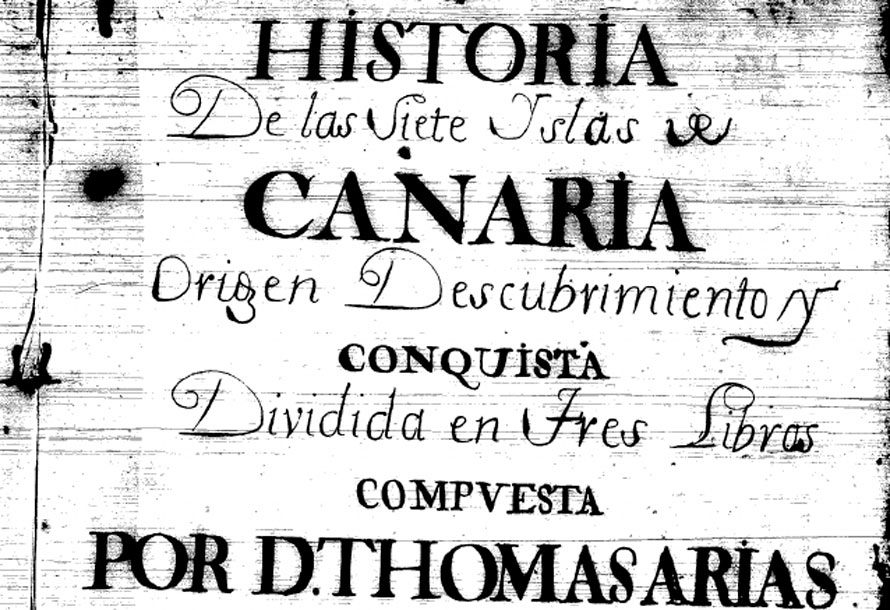 HISTORIA
De las Siete Islas de
CANARIA
Origen Descubrimiento y
CONQUISTA
Dividida en Tres Libros
COMPVESTA
POR D.THOMAS ARIAS